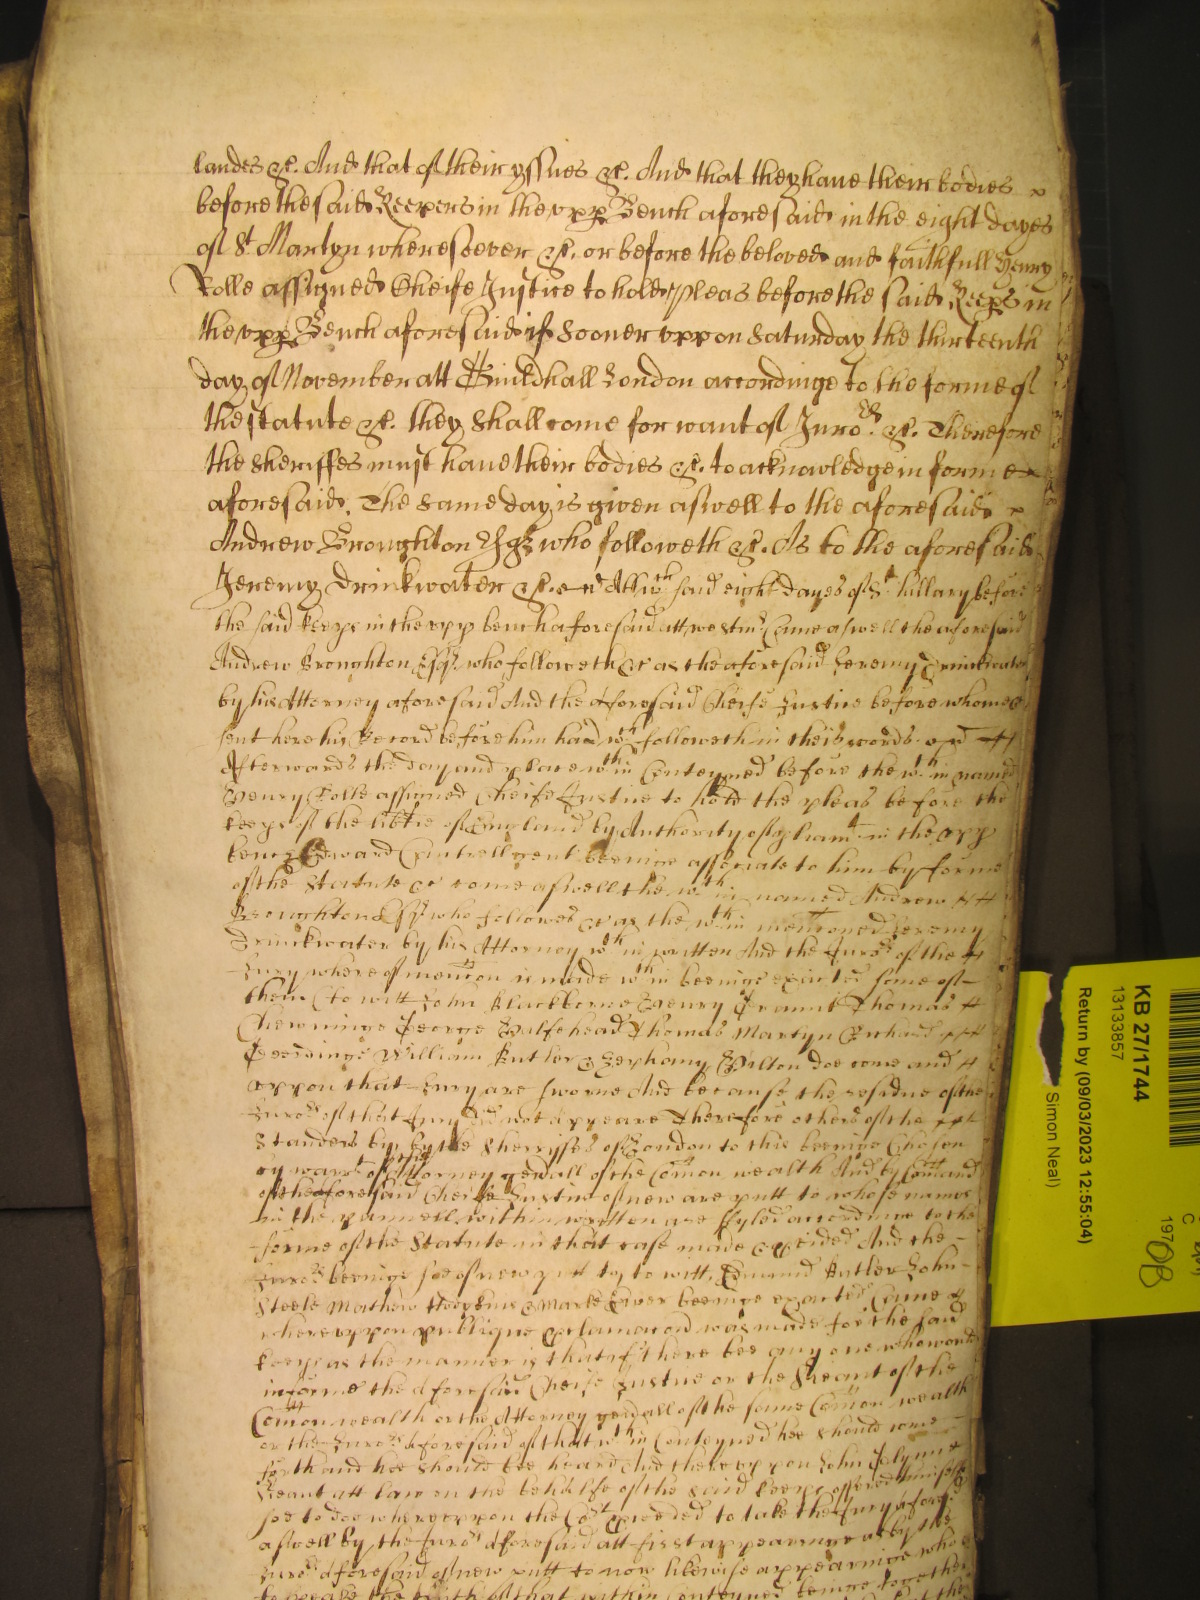 landes &c. And that of their yssues &c. And that they have their bodies
before the said Keepers in the upp Bench aforesaid in the eight dayes
of St. Martyn wheresoever &c. or before the beloved and faithfull Henry
Rolle assigned Cheife Justice to hold pleas before the said Keeps in
the upp Bench aforesaid if sooner uppon Saturday the thirteenth
day of November att Guildhall London accordinge to the forme of
the statute &c. they shall come for want of Juro.rs &c. Therefore
the Sheriffes must have their bodies &c. to acknowledge in forme
aforesaid. The same day is given aswell to the aforesaid
Andrew Broughton Esqz who followeth &c. As to the aforesaid
Jeremy Drinkwater &c. Att wch said eight dayes of St. hillary before
the said keeps in the upp bench aforesaid att westmr. Came aswell the aforesaid
Andrew Broughton Esqr. who followeth &c as the aforesaid Jeremy Drinkwater
by his Attorney aforesaid And the aforesaid Cheife Justice before whome &c
sent here his Record before him had wch followeth in theis words
Afterwards the day and place wth in Conteyned before the wth in named
Henry Rolle assigned Cheife Justice to hold the pleas before the
keeps of the libtie of England by Authority of pliamt. in the upp
bench Edward Cantrell gent beeinge associate to him by forme
of the Statute &c come aswell the wth in named Andrew
Broughton Esqr who followes &c as the wth in mencioned Jeremy
Drinkwater by his Attorney wth in written And the Juro.rs of the
Jury whereof mencon is made wth in beeinge exacted some of
them (to witt John Blackborne Henry Thomas
George Thomas Martyn Richard
William Butler & Zephany Wilton doe come and
uppon that Jury are sworne And because the residue of the
Juro.rs of that Jury did not appeare Therefore others of the
Standers by by the Sherriffes of London to this beeinge Chosen
by warrt of Attorney gen'all of the Comon wealth And by Comand
of the aforesaid Cheife Justice of new are putt to whose names
in the pannell within written are fyled accordinge to the
forme of the Statute in that case made & pvided And the
Juro.rs beeinge soe of new putt to, to witt, Edmund Butler John
Steele Mathew Hopkins & Marke beeinge exacted Came &
whereuppon publique pclamacon was made for the said
keeps as the manner is that if there bee any one who would
informe the aforesaid Cheife Justice or the Sjeant of the
Comon wealth or the Attorney gen'all of the same Comon wealth
or the Juro.rs aforesaid of that wth in Conteyned hee should come
forth and hee should bee heard And thereuppon John Glynne
Sjeant att law on the behalfe of the said keeps offered himselfe
soe to doe whereuppon the Cort pceeded to take the Jury aforesd.
aswell by the Juro.rs aforesaid att first appearinge as by the
Juro.rs aforesaid of new putt to now likewise appearinge who
to speake the truth of that within Conteyned beinge together
KB 27/1744
13133857
Return by (09/03/2023 12:55:04)
Simon Neal)